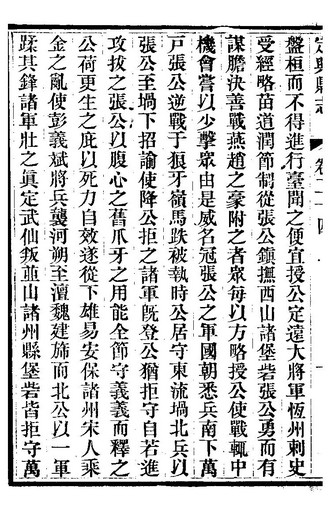 定興縣志 卷二十四
盤桓而不得進行臺聞之便宜授公定遠大將軍恆州刺史
受經略苗道潤節制從張公鎮撫西山諸堡砦張公勇而有
謀膽決善戰燕趙之豪附之者衆每以方略授公使戰輒中
機會嘗以少擊眾由是威名冠張公之軍國朝悉兵南下萬
戶張公逆戰于狼牙嶺馬跌被執時公居守東流堝北兵以
張公至堝下招諭使降公拒之諸軍旣登公猶拒守自若進
攻拔之張公以腹心之舊爪牙之用能全節守義義而釋之
公荷更生之庇以死力自效遂從下雄易安保諸州宋人乘
金之亂使彭義斌將兵襲河朔至澶魏建旆而北公以一軍
蹂其鋒諸軍壯之眞定武仙叛並山諸州縣堡砦皆拒守萬